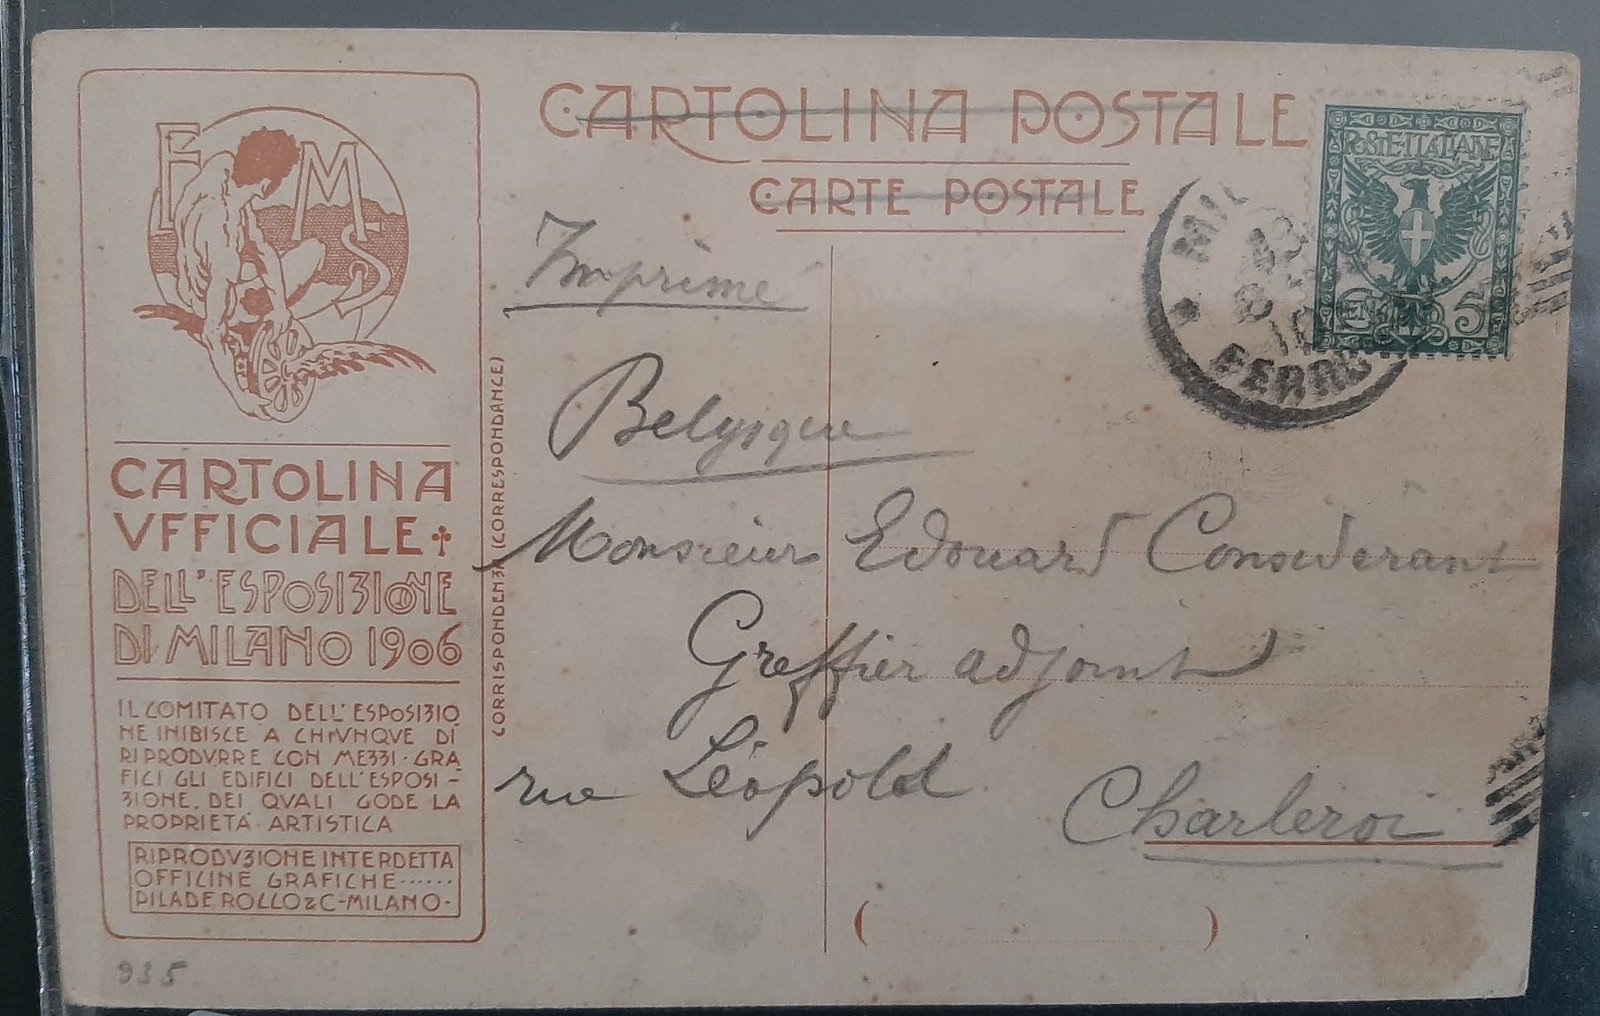 E M S
CARTOLINA
VFFICIALE
DELL'ESPOSIZIONE
DI MILANO 1906
IL COMITATO DELL'ESPOSIZIO
NE INIBISCE A CHIVNQVE DI
RIPRODVRRE CON MEZZI·GRA
FICI GLI EDIFICI DELL'ESPOSI-
ZIONE, DEI QVALI GODE LA
PROPRIETÀ ARTISTICA
RIPRODVZIONE INTERDETTA
OFFICINE GRAFICHE······
PILADE ROLLO & C-MILANO-
935
(CORRISPONDENZA (CORRESPONDANCE)
CARTOLINA POSTALE
CARTE POSTALE
POSTE·ITALIANE
5
MIL
FERRO
Imprimé
Belgique
Monsieur Edouard Considerant
Greffier adjoint
rue Léopold
Charleroi
( )